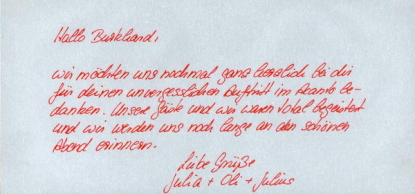 Hallo Burkhard,
wir möchten uns nochmal ganz herzlich bei dir
für deinen unvergesslichen Auftritt im be-
danken. Unsere Gäste und wir waren total begeistert
und wir werden uns noch lange an den schönen
Abend erinnern.
Liebe Grüße
Julia + Oli + Julius